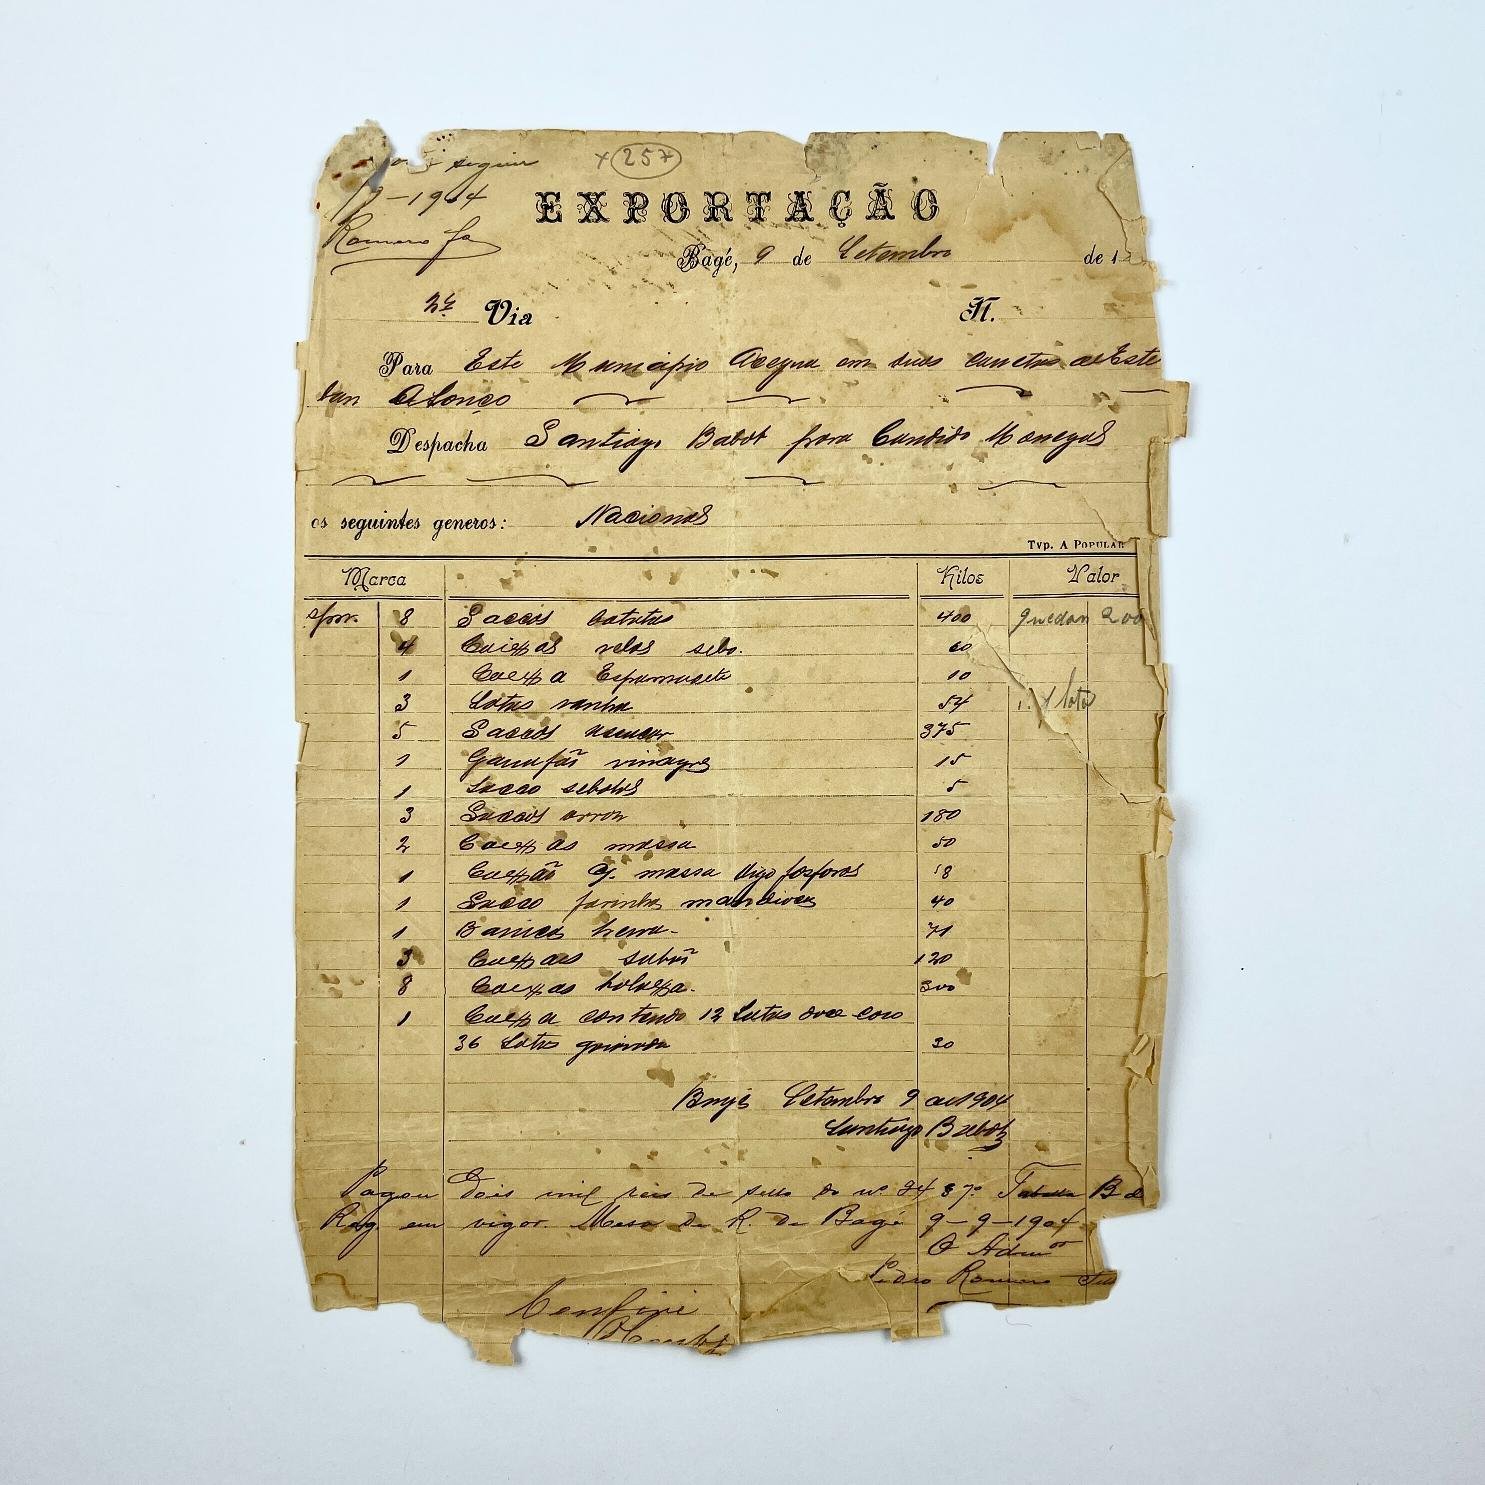 seguir
× 257
9-1904
EXPORTAÇÃO
Romero
Bagé, 9 de Setembro de 1
2ª Via N.
Para Este Municipio Acegua em duas carretas de Este
ban Alonço
Despacha Santiago Babot para Candido Monegal
os seguintes generos: Nacional
Typ. A Popular
Marca Kilos Valor
s/m. 8 Saccos batatas 400 quedan 200
4 Caixas velas sebo. 60
1 Caixa Espermacete 10
3 Latas banha 54 1 lata
5 Saccos assucar 375
1 Garrafão vinagre 15
1 Sacco sebolas 5
3 Saccos arroz 180
2 Caixas massa 50
1 Caixão c/. massa digo fosforos 18
1 Sacco farinha mandioca 40
1 Barrica herva- 71
3 Caixaes sabão 120
8 Caixas bolaxa. 300
1 Caixa contendo 12 Latas doce coco
36 Latas goiavada 30
Bagé Setembro 9 de 1904
Santiago Babot
Pagou dois mil reis de sello do nº 24 § 7º Tabella B do
Reg. em vigor. Mesa de R. de Bagé 9-9-1904
O Admor
Pedro Romero
Conferi